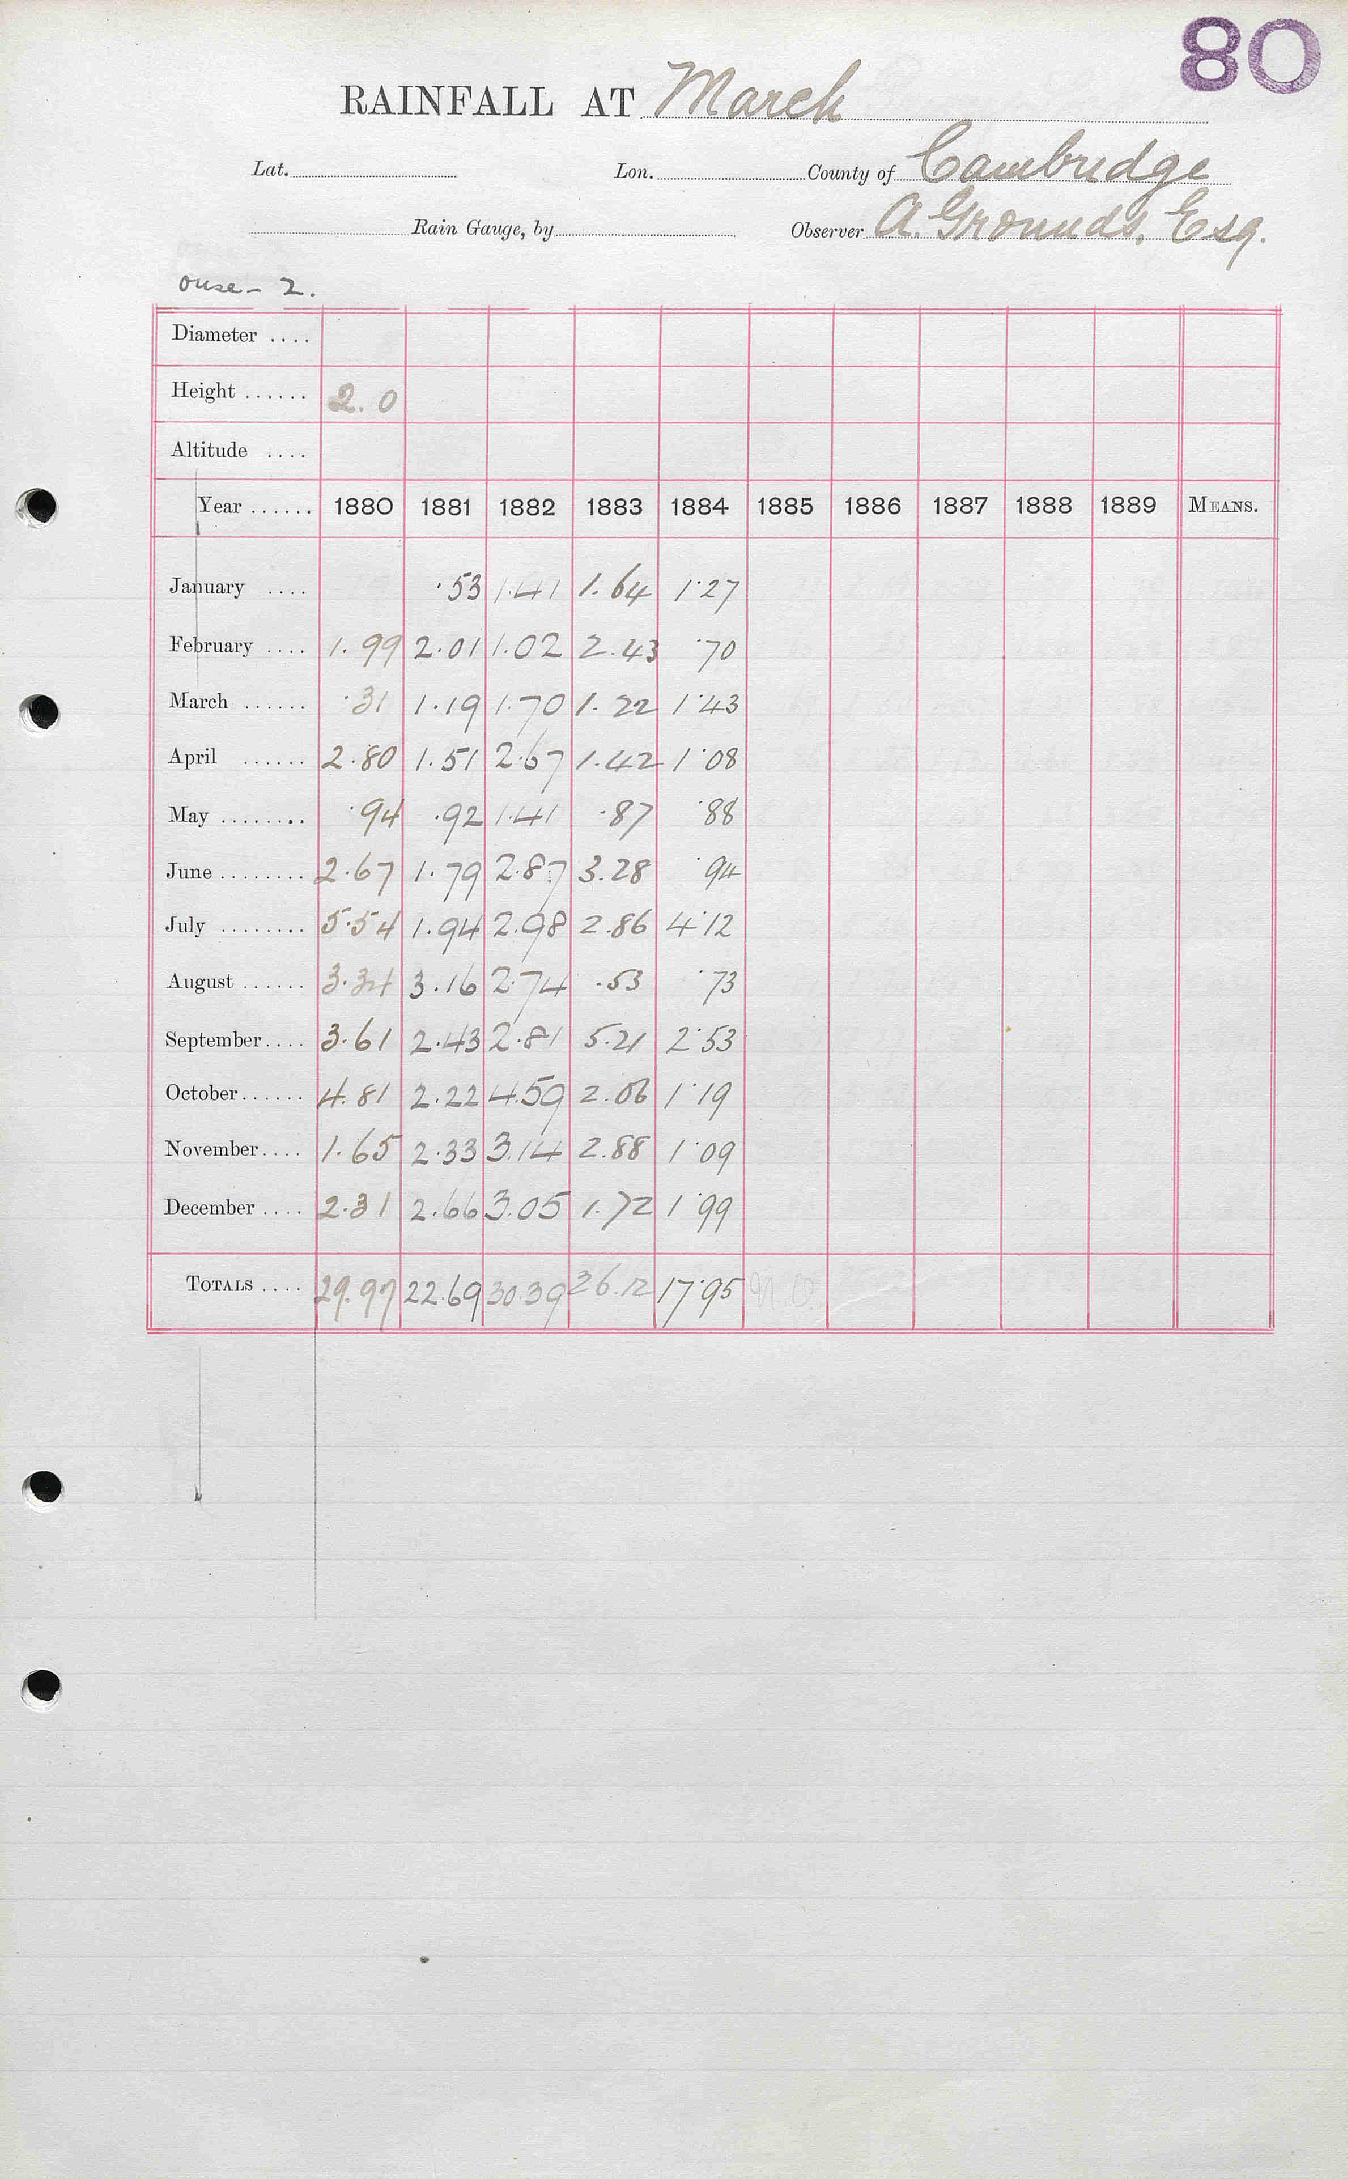 80
RAINFALL AT March
Lat. Lon. County of Cambridge
Rain Gauge, by Observer A. Grounds, Esq.
Ouse - 2.
Diameter ....
Height ...... 2.0
Altitude ....
Year ...... 1880 1881 1882 1883 1884 1885 1886 1887 1888 1889 MEANS.
January .... ·53 1·41 1.64 1·27
February .... 1.99 2.01 1.02 2.43 ·70
March ...... ·31 1.19 1.70 1.22 1·43
April ...... 2.80 1.51 2.67 1.42 1·08
May ........ ·94 ·92 1·41 ·87 ·88
June ........ 2·67 1.79 2·87 3.28 ·94
July ........ 5·54 1.94 2.98 2.86 4·12
August ...... 3·34 3.16 2·74 ·53 ·73
September.... 3·61 2·43 2·81 5·21 2·53
October...... 4.81 2.22 4.59 2.06 1·19
November.... 1.65 2·33 3.14 2.88 1·09
December .... 2·31 2.66 3.05 1.72 1·99
TOTALS .... 29.97 22.69 30.39 26.12 17·95 N.O.